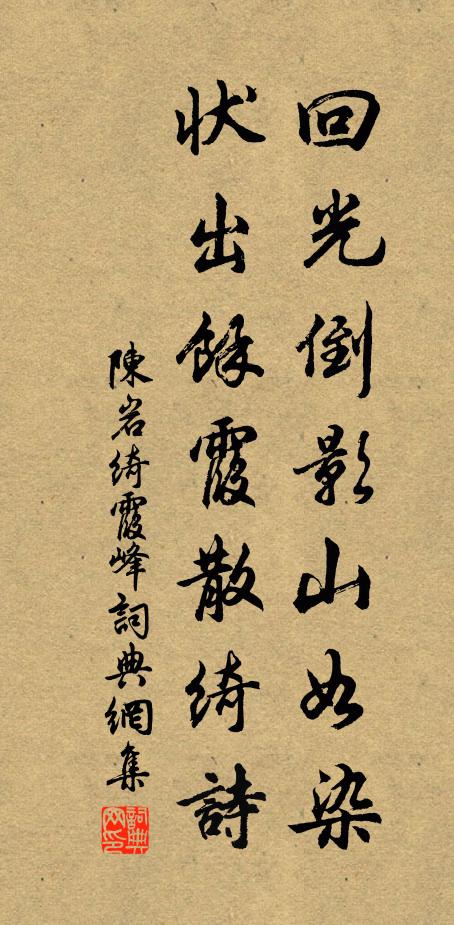 回光倒影山如染
狀出餘霞散綺詩
陳岩綺霞峰詞典網集
詞典网印